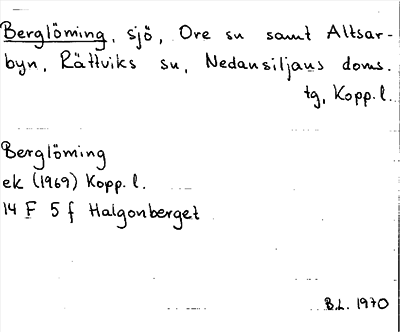 Berglöming, sjö, Ore sn samt Altsar-
byn, Rättviks sn, Nedansiljans doms.
tg, Kopp. l.
Berglöming
ek (1969) Kopp. l.
14 F 5 f Halgonberget
B.L. 1970